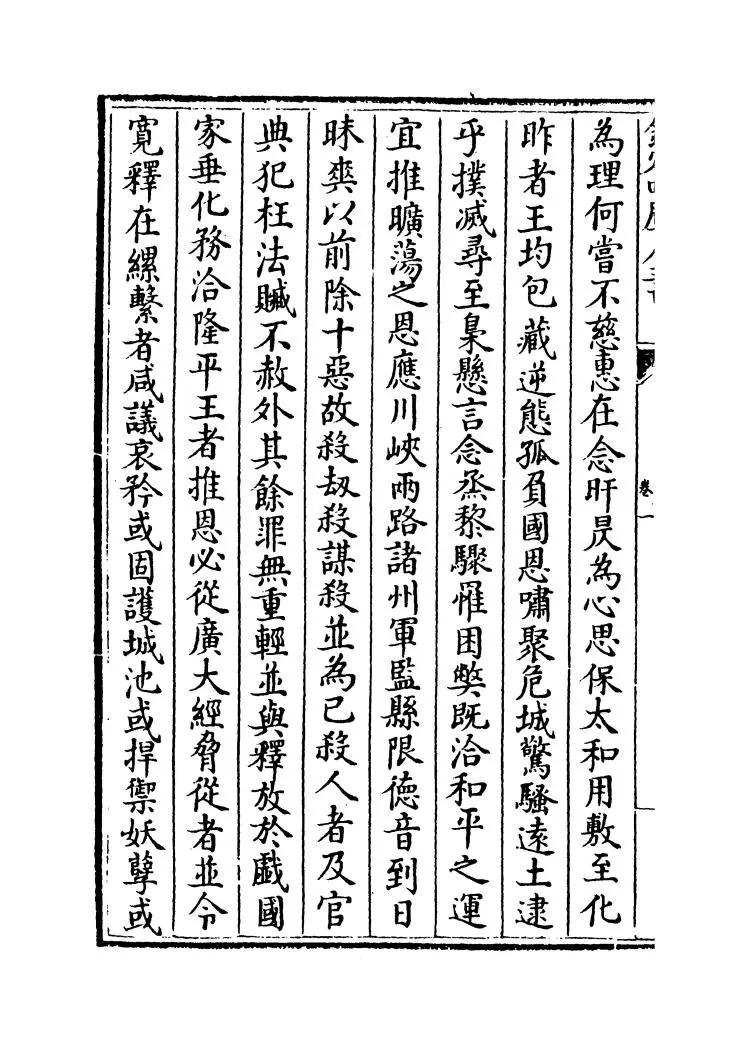 卷一
為理何嘗不慈惠在念旰昃為心思保太和用敷至化
昨者王均包藏逆態孤負國恩嘯聚危城驚騷遠土逮
乎撲滅尋至梟懸言念烝黎驟罹困弊既洽和平之運
宜推曠蕩之恩應川峽兩路諸州軍監縣限德音到日
昧爽以前除十惡故殺刼殺謀殺並為已殺人者及官
典犯枉法贓不赦外其餘罪無重輕並與釋放於戲國
家垂化務洽隆平王者推恩必從廣大經脅從者並令
寛釋在縲繫者咸議哀矜或固護城池或捍禦妖孽或